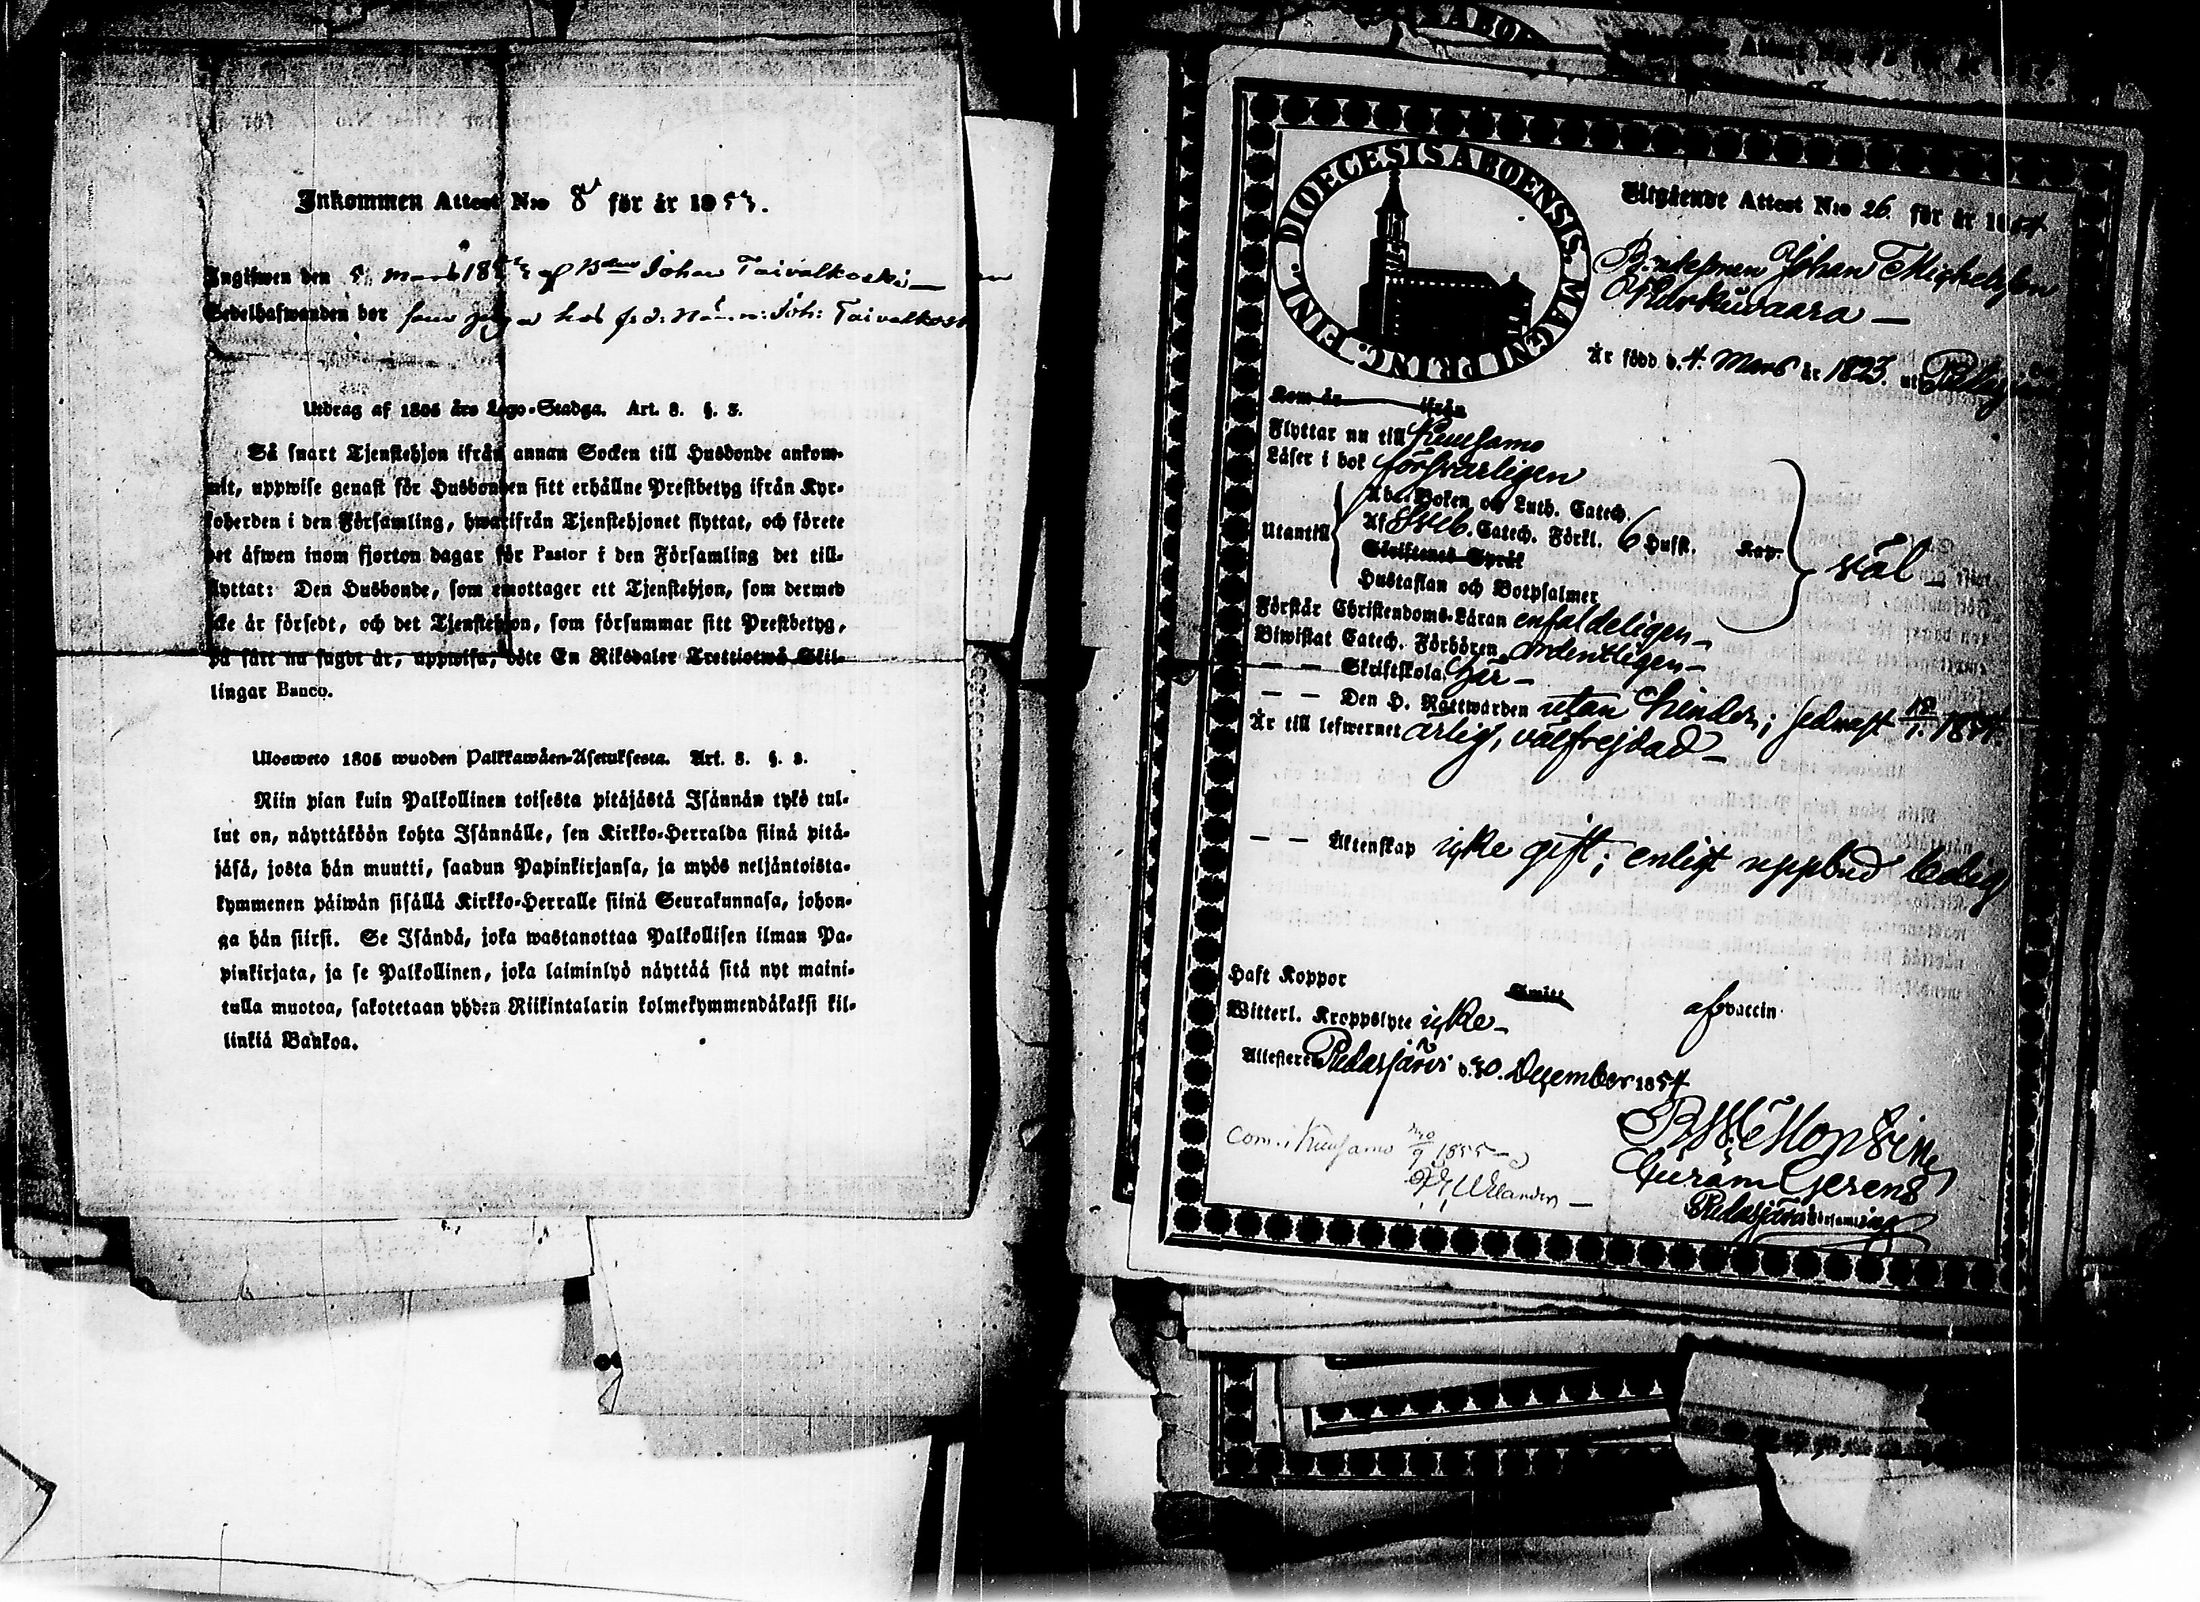 Inkommen Attest N:o 8 för år 1853.
Ingifwen den 5 mars 1853 af Johan Taivalkoski
Sedelhafwanden bor som hos Joh: Taivalkoski
Utdrag af 1805 års Lego-Stadga. Art. 8. §. 3.
Så snart Tjenstehjon ifrån annan Socken till Husbonde ankom-
mit, uppwise genast för Husbonden sitt erhållne Prestbetyg ifrån Kyr-
koherden i den Församling, hwarifrån Tjenstehjonet flyttat, och förete
det äfwen inom fjorton dagar för Pastor i den Församling det till-
flyttat: Den Husbonde, som emottager ett Tjenstehjon, som dermed
icke är försedt, och det Tjenstehjon, som försummar sitt Prestbetyg,
på sätt nu sagdt är, uppwisa, böte En Riksdaler Trettiotwå Skil-
lingar Banco.
Ulosweto 1805 wuoden Palkkawäen-Asetuksesta. Art. 8. §. 3.
Niin pian kuin Palkollinen toisesta pitäjästä Isännän tykö tul-
lut on, näyttäköön kohta Isännälle, sen Kirkko-Herralda siinä pitä-
jäsä, josta hän muutti, saadun Papinkirjansa, ja myös neljäntoista-
kymmenen päiwän sisällä Kirkko-Herralle siinä Seurakunnasa, johon-
ga hän siirsi. Se Isändä, joka wastanottaa Palkollisen ilman Pa-
pinkirjata, ja se Palkollinen, joka laiminlyö näyttää sitä nyt maini-
tulla muotoa, sakotetaan yhden Riikintalarin kolmekymmendäkaksi kil-
linkiä Bankoa.
DIOECESIS ABOENSIS. MAGNI PRINC. FINL.
Utgående Attest N:o 26. för år 1854
Johan Michelsson
Kurkuwaara —
Är född d. 4. Mars år 1823. uti Pudasjärvi
Kom år ifrån
Flyttar nu till Kuusamo
Läser i bok försvarligen
Abc-Boken och Luth. Catech.
Utantill Af Sveb. Catech. Förkl. 6 Hufst. Kap. väl —
Skriftenes Språk
Hustaflan och Botpsalmer
Förstår Christendoms-Läran enfaldeligen —
Biwistat Catech. Förhören ordentligen —
— — Skriftskola här —
— — Den H. Nattwarden utan hinder; sednast 1854.
Är till lefwernet ärlig, välfrejdad —
— — Äktenskap icke gift; enligt uppbud ledig
Haft Koppor Smitt af vaccin
Witterl. Kroppslyte icke —
Attesterar Pudasjärvi d. 30. December 1854
Kuusamo 1855
Pudasjärvi Församling